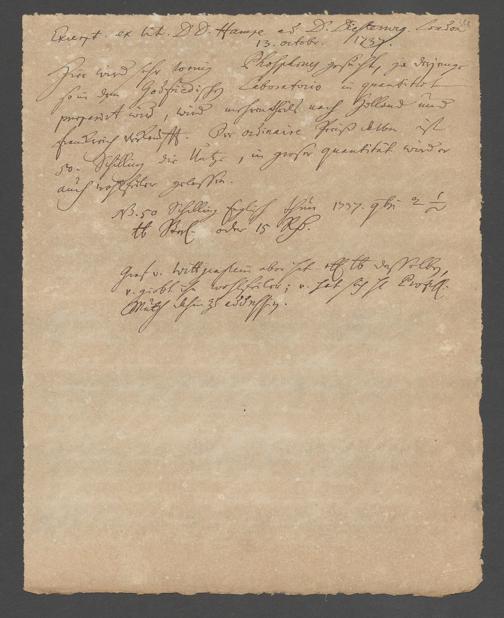 Excerpt ex lit. D. D. Hampe ad D. Diesterweg. London
13. octobr. 1737.
Hier wird sehr wenig Phosphorus gesucht, ja derjenige
so in dem Laboratorio in quantitet
præparirt wird, wird mehrentheils nach Holland und
Frankreich verkaufft. Der ordinaire Preiß deßen ist
50. Schilling die Untze, in großer quantität wird er
auch wohlfeiler gelassen.
NB. 50 Schilling Englisch thun 1737. 2 1/2
lb Sterl. oder 15
Graf v. Wittgenstein aber hat lb desselben,
u. giebt ihn wohlfeiler; u. hat sich
zu addressiren.